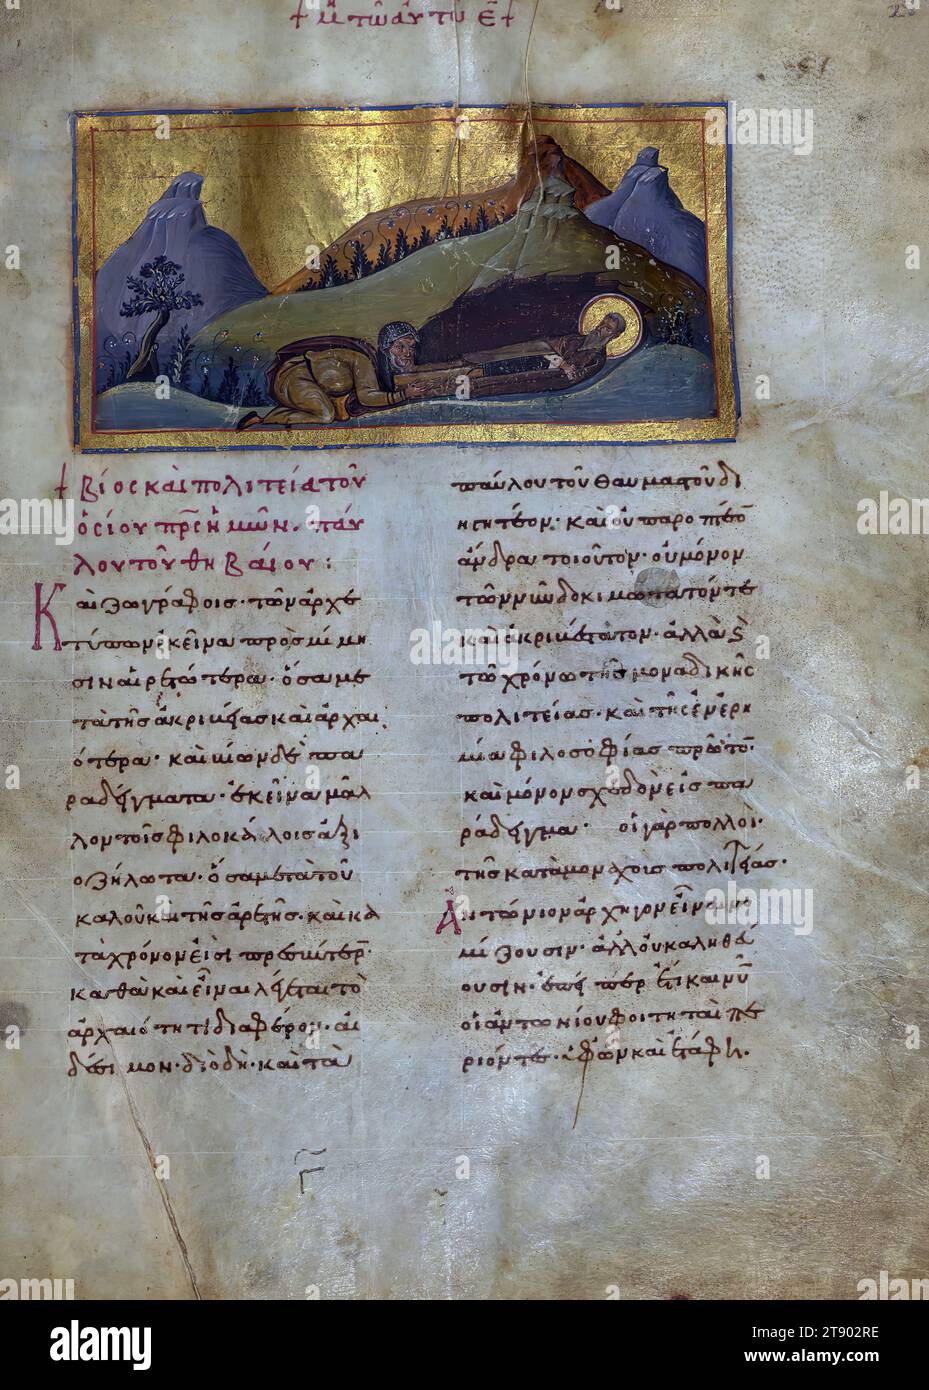 † Μ τῶ αὐτῶ Ε †
† Βίος καὶ πολιτεία τοῦ
ὁσίου πρς ἡμῶν παύ
λου τοῦ θηβαίου:
Καὶ ζωγράφοις τῶν ἀρχε
τύπων ἐκεῖνα πρὸς μίμη
σιν αἱρετώτερα· ὅσα με
τὰ τῆς ἀκριβείας καὶ ἀρχαι
ότερα· καὶ βίων δὲ πα
ραδείγματα· ἐκεῖνα μᾶλ
λον τοῖς φιλοκάλοις ἀξι
οζήλωτα· ὅσα μετὰ τοῦ
καλοῦ καὶ τῆς ἀρετῆς· καὶ κα
τὰ χρόνον εἰσὶ πρεσβύτερ
καθὰ καὶ εἶναι λέγεται τὸ
ἀρχαιότητι διαφέρον· αἰ
δέσιμον· διὸ δὴ· καὶ τὰ
παύλου τοῦ θαυμαστοῦ δι
ηγητέον· καὶ οὐ παροπτέον
ἄνδρα τοιοῦτον· οὐ μόνον
τῶν βίῳ δοκιμωτατόν τε
καὶ ἀκριβέστατον· ἀλλὰ καὶ
τῶ χρόνω τῆς μοναδικῆς
πολιτείας· καὶ τῆς ἐν ἐρη
μία φιλοσοφίας πρῶτον·
καὶ μόνον σχεδὸν εἰς πα
ράδειγμα· οἱ γὰρ πολλοὶ·
τῆς κατὰ μοναχοὺς πολιτείας·
Ἀντώνιον ἀρχηγὸν εἶναι νο
μίζουσιν· ἀλλ' οὐκ ἀληθεύ
ουσιν· ὥσπερ ἔτι καὶ νῦν
οἱ ἀντωνίου φοιτηταὶ πε
ριόντες
alamy
Image ID: 2T902RE
www.alamy.com